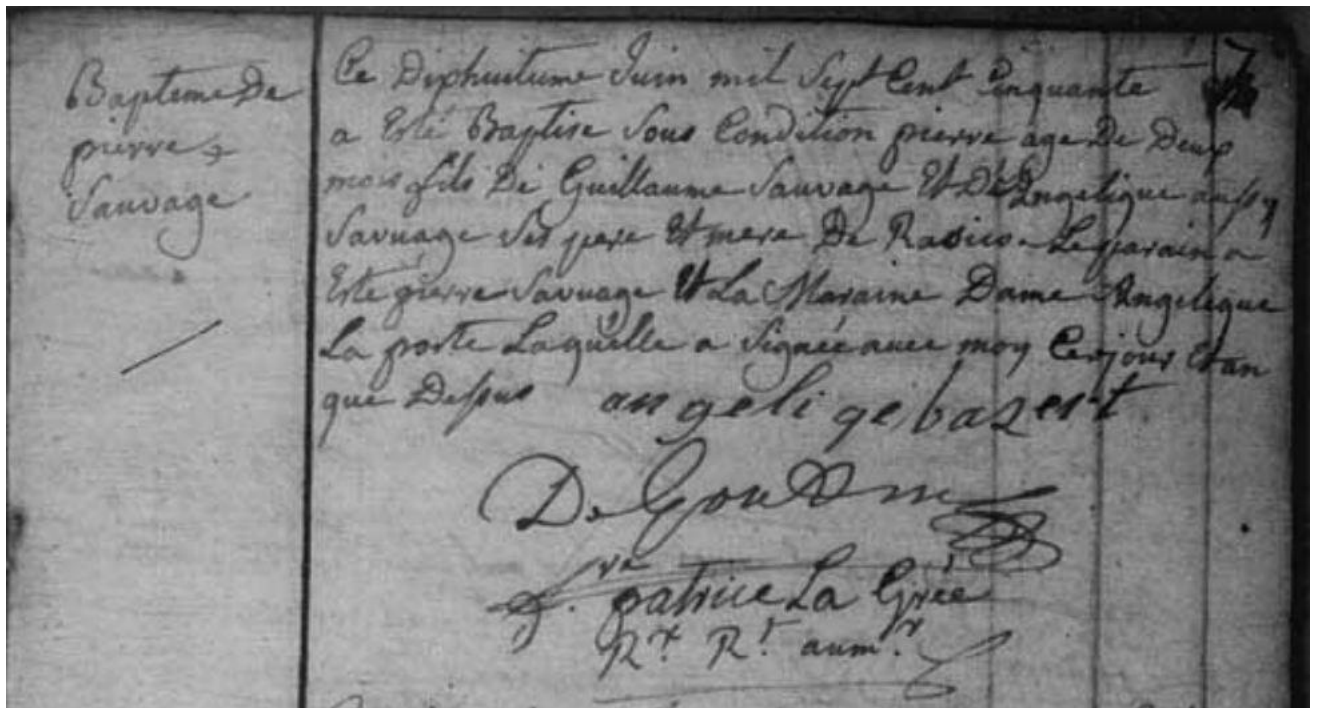 Bapteme De
pierre
Sauvage
7
Ce Dixhuitieme Juin mil Sept Cent Cinquante
a Esté Baptise Sous Condition pierre age De Deux
mois fils De Guillaume Sauvage Et De Angelique aussy
Savuage Ses pere Et mere De Le parain a
Este pierre Savuage Et La Maraine Dame Angelique
La porte Laquelle a Signée avec moy Ce jour Et an
que Dessus angeli ge bazert
f. patrice La Grée
R. aum.r